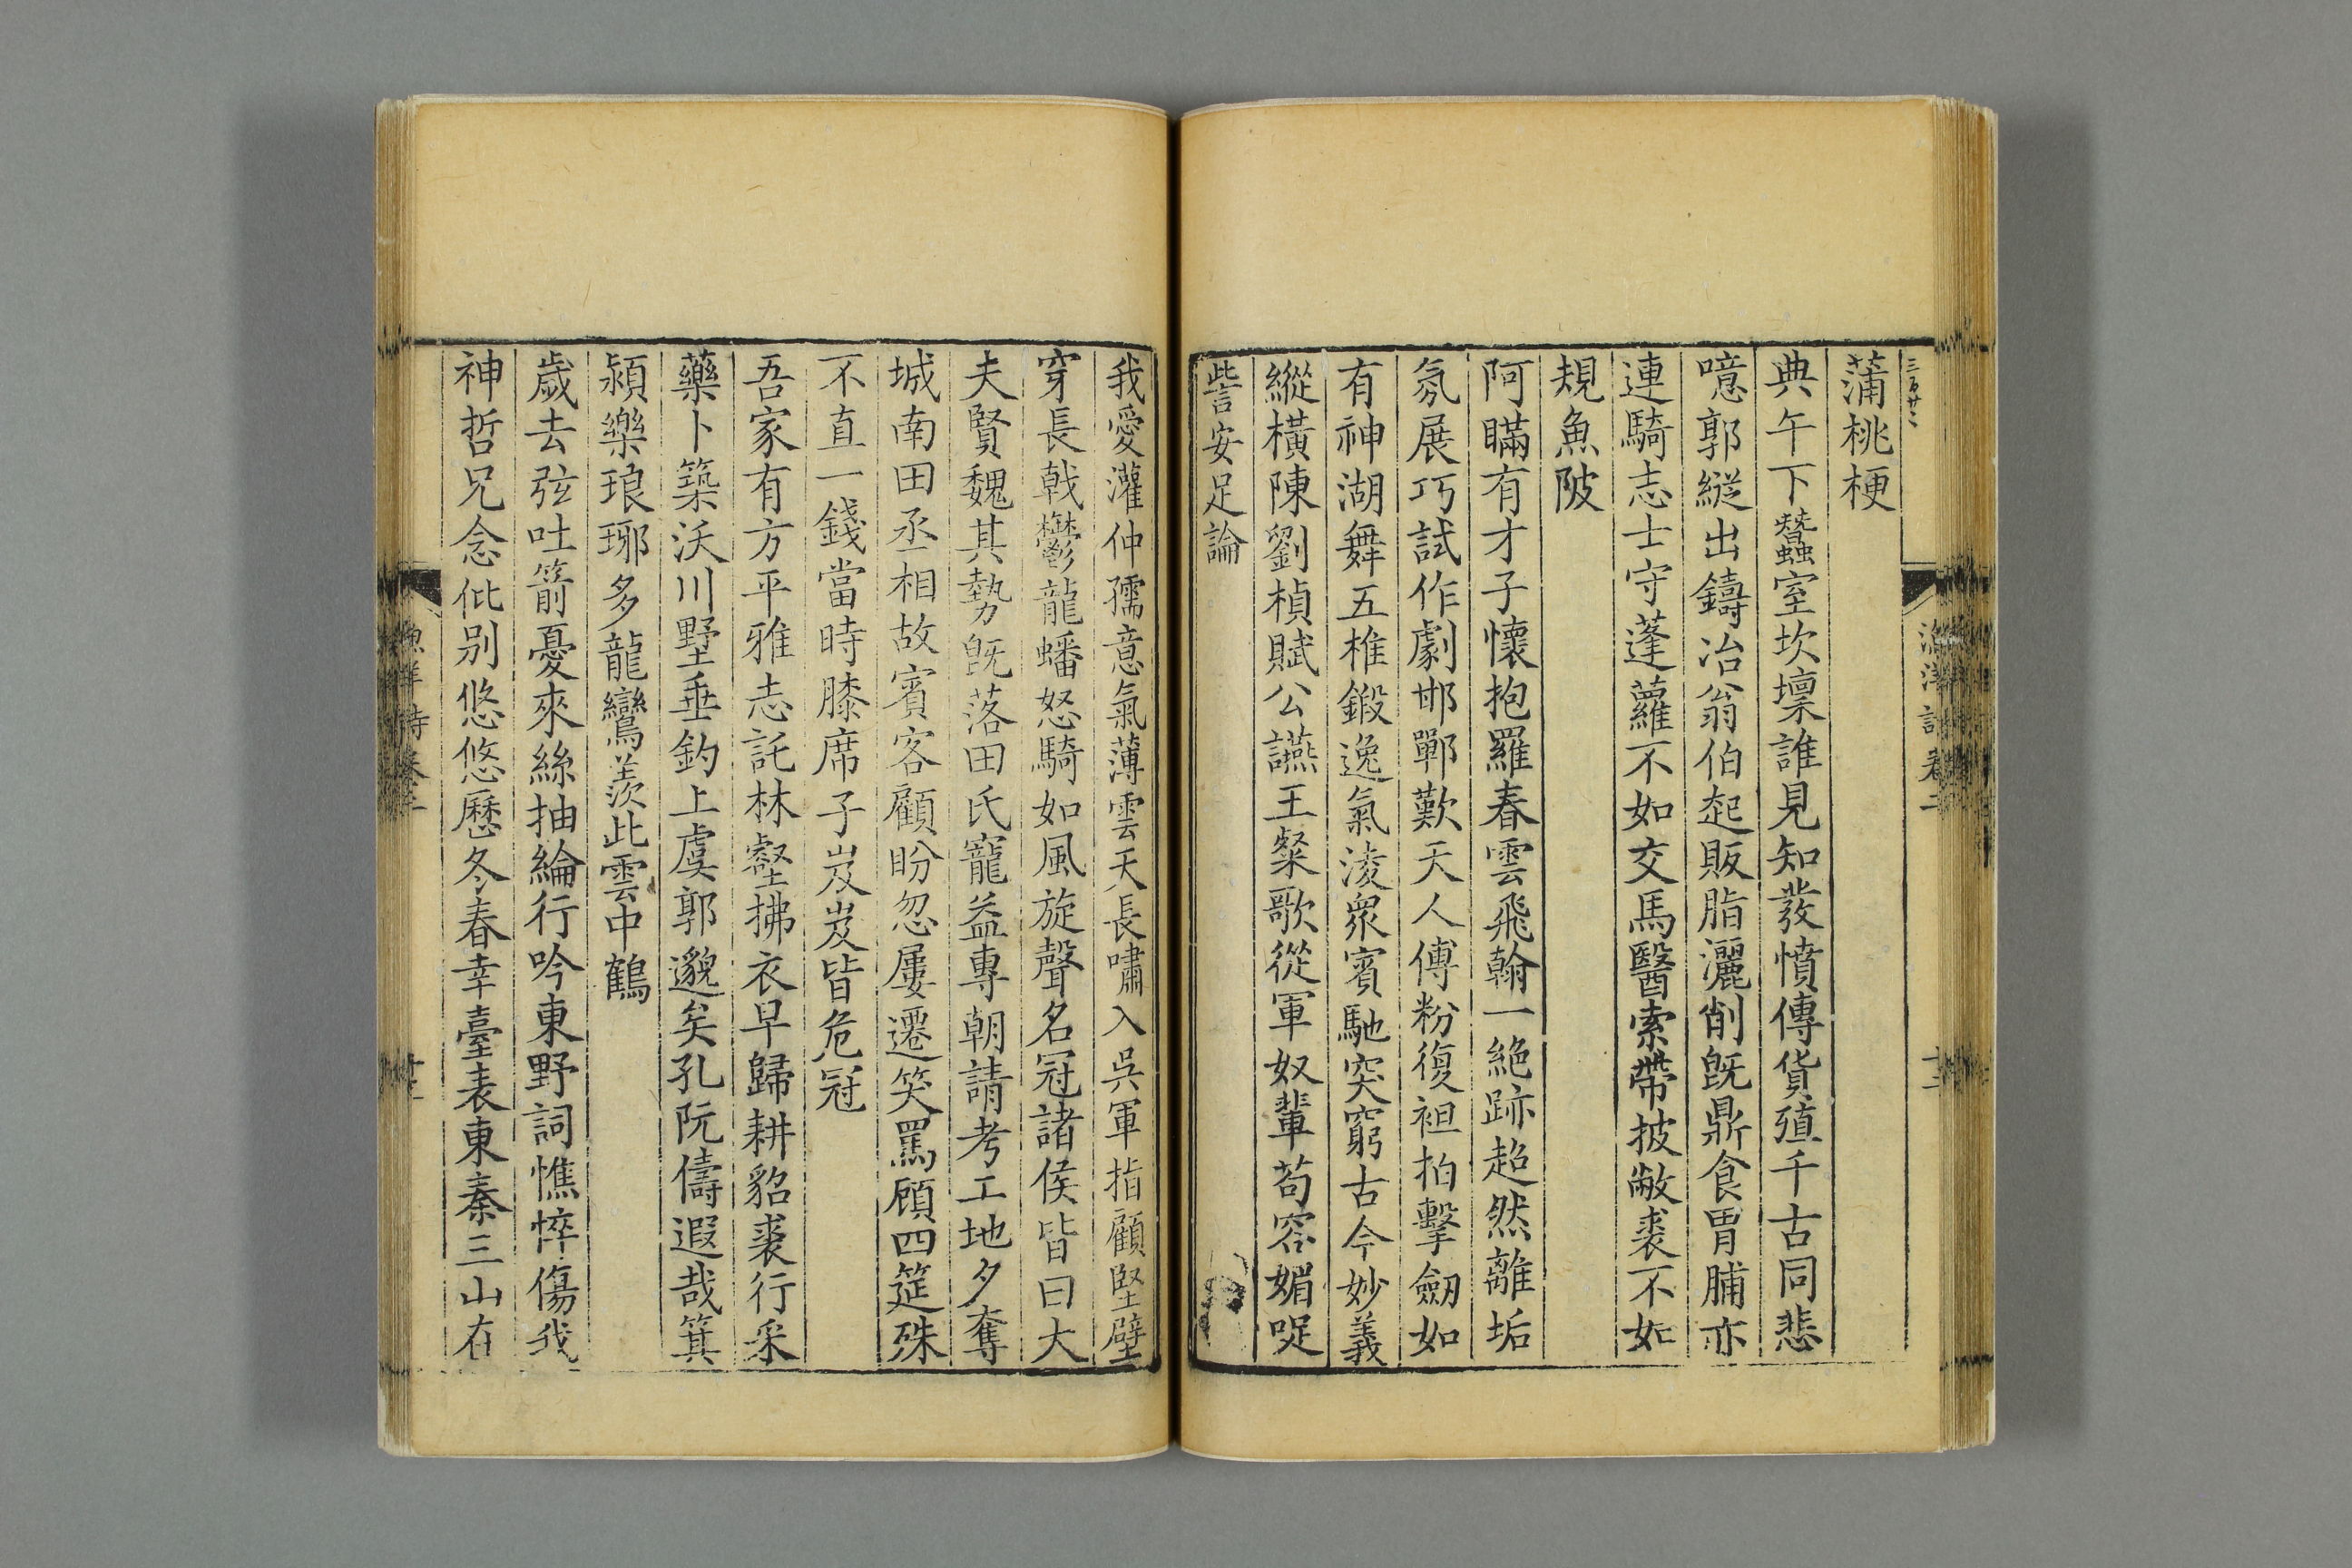 蒲桃梗
典午下蠶室坎壈誰見知發憤傳貨殖千古同悲
噫郭縱出鑄冶翁伯起販脂灑削旣鼎食胃脯亦
連騎志士守蓬蘿不如交馬醫索帶披敝裘不如
規魚陂
阿瞞有才子懷抱羅春雲飛翰一絶跡超然離垢
氛展巧試作劇邯鄲歎天人傅粉復袒拍擊劒如
有神湖舞五椎鍛逸氣淩衆賓馳突窮古今妙義
縱橫陳劉楨賦公讌王粲歌從軍奴輩苟容媚哫
訾安足論
我愛灌仲孺意氣薄雲天長嘯入吳軍指顧堅壁
穿長戟鬱龍蟠怒騎如風旋聲名冠諸侯皆曰大
夫賢魏其勢旣落田氏寵益專朝請考工地夕奪
城南田丞相故賓客顧盼忽屢遷笑罵顧四筵殊
不直一錢當時膝席子岌岌皆危冠
吾家有方平雅志託林壑拂衣早歸耕貂裘行采
藥卜築沃川墅垂釣上虞郭邈矣孔阮儔遐哉箕
潁樂琅琊多龍鸞羨此雲中鶴
歲去弦吐箭憂來絲抽綸行吟東野詞憔悴傷我
神哲兄念仳别悠悠歷冬春幸臺表東秦三山在
漁洋詩卷二